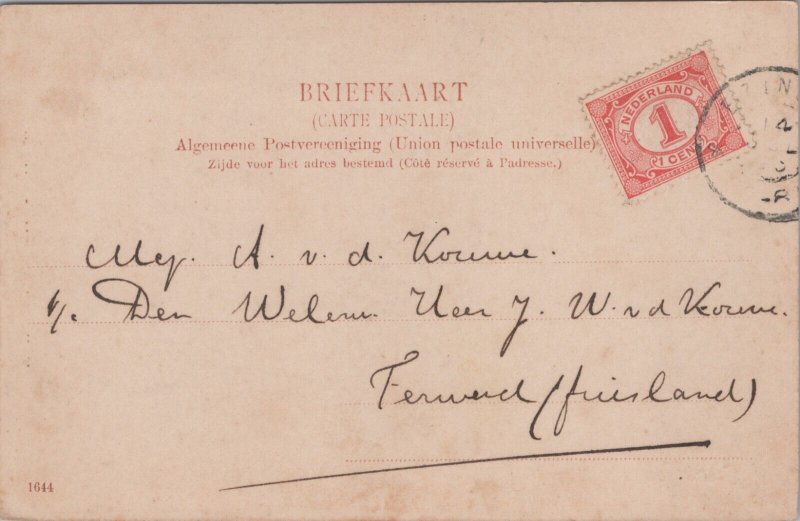 BRIEFKAART
(CARTE POSTALE)
Algemeene Postvereeniging (Union postale universelle)
Zijde voor het adres bestemd (Côté réservé à l'adresse.)
NEDERLAND
1
1 CENT
Mej. A. v. d. Kouwe.
p/a. Den Welerw. Heer J. W. v d Kouwe.
Ferwerd (friesland)
1644